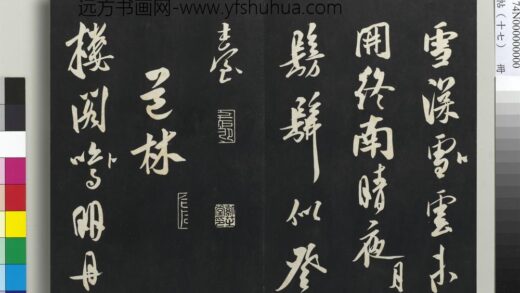 远方书画网-www.yfshuhua.com
雪雲未
開終南晴夜月
髣髴似登
臺
林
樓閣鳴明丹
74N000000000
帖（十七） 冊